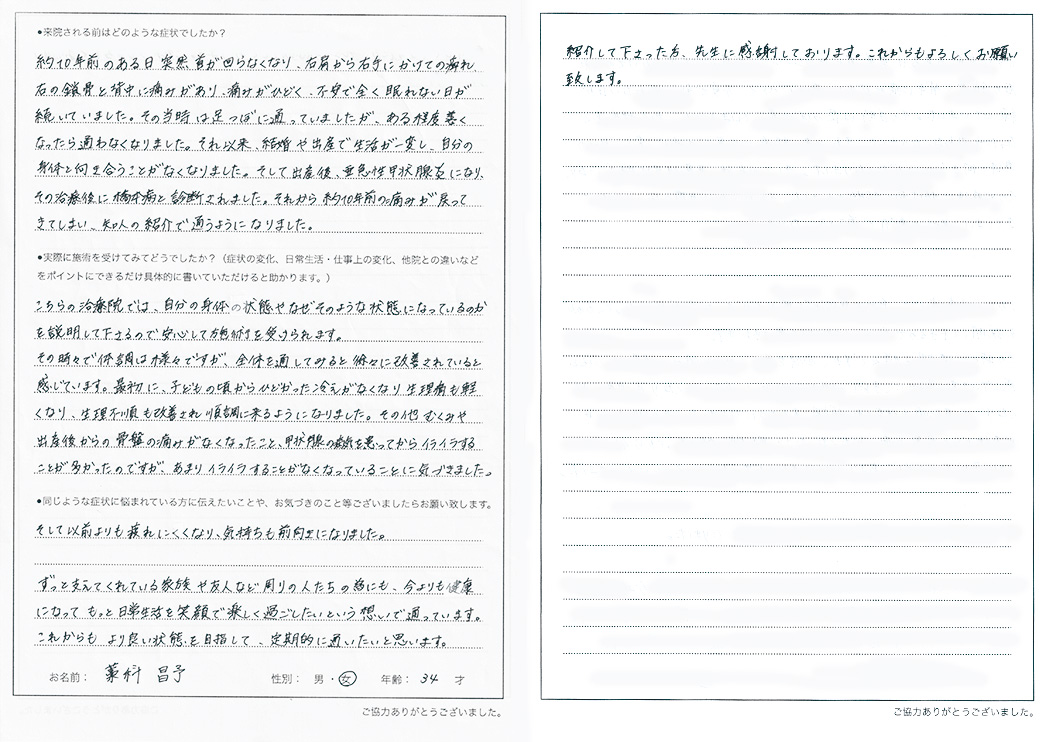 ●来院される前はどのような症状でしたか？
約10年前のある日突然首が回らなくなり、右肩から右手にかけての痺れ、
右の鎖骨と背中に痛みがあり、痛みがひどく、不安で全く眠れない日が
続いていました。その当時は足つぼに通っていましたが、ある程度善く
なったら通わなくなりました。それ以来、結婚や出産で生活が一変し、自分の
身体と向き合うことがなくなりました。そして出産後、亜急性甲状腺炎になり、
その治療後に橋本病と診断されました。それから約10年前の痛みが戻って
きてしまい、知人の紹介で通うようになりました。
●実際に施術を受けてみてどうでしたか？（症状の変化、日常生活・仕事上の変化、他院との違いなど
をポイントにできるだけ具体的に書いていただけると助かります。）
こちらの治療院では、自分の身体の状態やなぜそのような状態になっているのか
を説明して下さるので安心して施術を受けられます。
その時々で体調は様々ですが、全体を通してみると徐々に改善されていると
感じています。最初に、子どもの頃からひどかった冷えがなくなり生理痛も軽
くなり、生理不順も改善され順調に来るようになりました。その他むくみや
出産後からの骨盤の痛みがなくなったこと、甲状腺の病気を患ってからイライラする
ことが多かったのですが、あまりイライラすることがなくなっていることに気づきました。
●同じような症状に悩まれている方に伝えたいことや、お気づきのこと等ございましたらお願い致します。
そして以前よりも疲れにくくなり、気持ちも前向きになりました。
ずっと支えてくれている家族や友人など周りの人たちの為にも、今よりも健康
になってもっと日常生活を笑顔で楽しく過ごしたいという想いで通っています。
これからもより良い状態を目指して、定期的に通いたいと思います。
お名前： 藁科 昌予 性別： 男・女 年齢： 34 才
ご協力ありがとうございました。
紹介して下さった方、先生に感謝しております。これからもよろしくお願い
致します。
ご協力ありがとうございました。